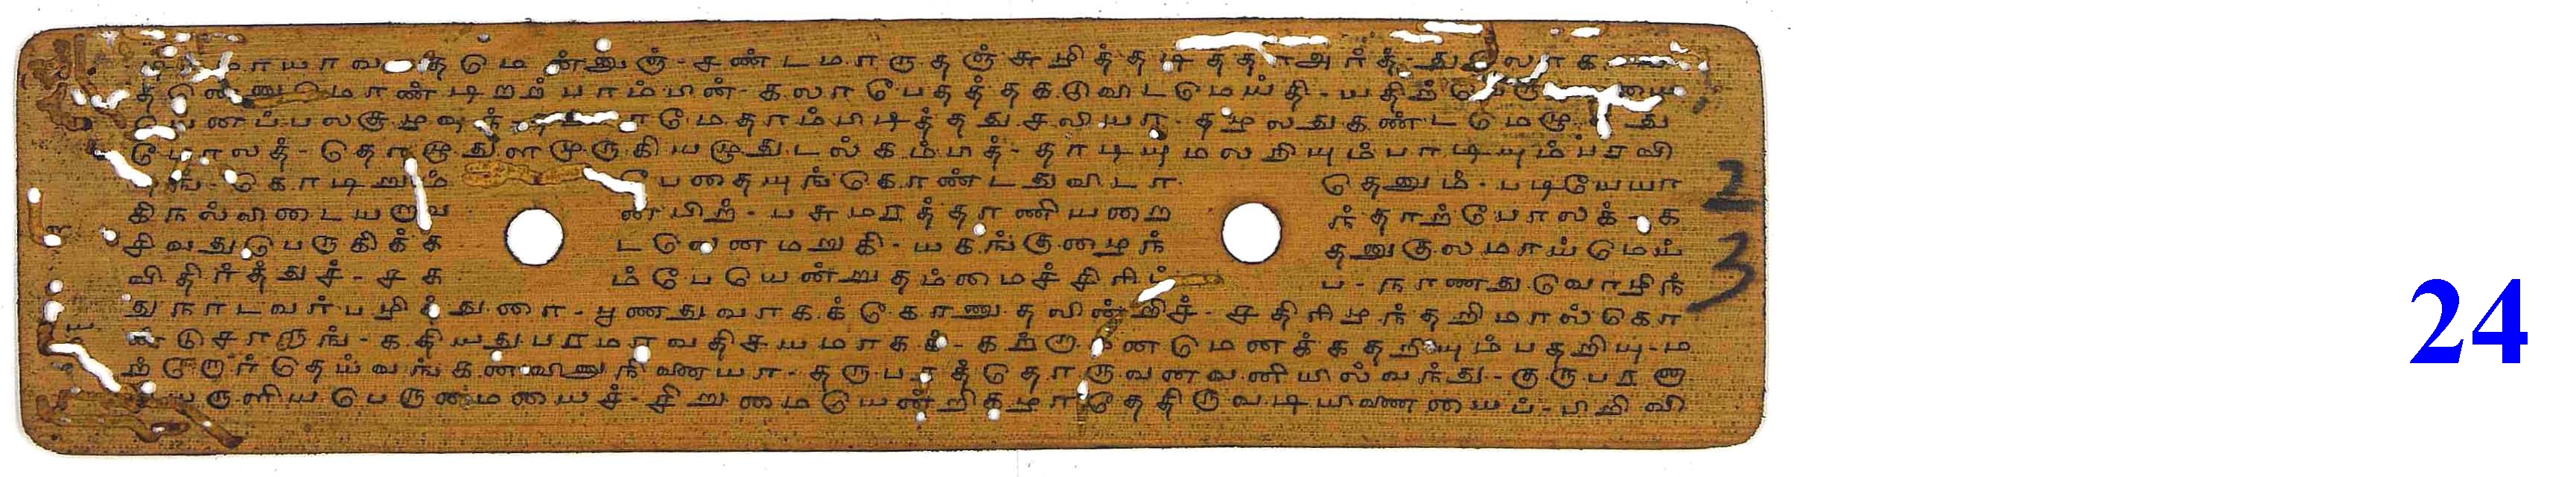 மாயாவாதமென்னுஞ் - சண்டமாருதஞ்சுழித்தடித்தாஅர்த் - துலோகா
தனெனுமொண்டிறற்பாம்பின் - கலாபேதத்தகடுவிடமெய்தி - யதிற்பெருமாயை
யெனப்பலசூழவுந் - தப்பாமேதாம்பிடித்ததுசலியா - தழலதுகண்டமெழுகது
போலத் - தொழுதுளமுருகியழுதுடல்கம்பித் - தாடியுமலறியும்பாடியும்பரவி
யுங் - கொடிறும் பேதையுங்கொண்டதுவிடா தெனும் - படியேயா
கிநல்லிடையறாவ ன்பிற் - பசுமரத்தாணியறை ந்தாற்போலக் - க
சிவதுபெருகிக்க டலெனமறுகி - யகங்குழைந் தனுகுலமாய்மெய்
விதிர்த்துச் - சக ம்பேயென்றுதம்மைச்சிரிப் ப - நாணதுவொழிந்
துநாடவர்பழித்துரை - பூணதுவாகக்கோணுதலின்றிச் - சதிரிழந்தறிமால்கொ
ண்டுசாருங் - கதியதுபரமாவதிசயமாகக் - கற்றாமனமெனக்கதறியும்பதறியு - ம
ற்றோர்தெய்வங்கனவிலுநினையா - தருபரத்தொருவனவனியில்வந்து - குருபரனா
யருளியபெருமையைச் - சிறுமையென்றிகழாதேதிருவடியிணையைப் - பிறிவி
23
24